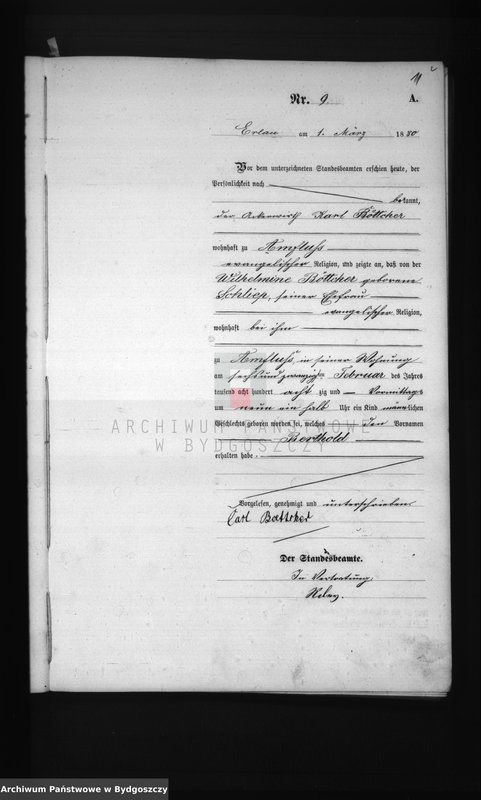 11
Nr. 9.
A.
Erlau am 1. März 1880
Vor dem unterzeichneten Standesbeamten erschien heute, der
Persönlichkeit nach
bekannt,
der Ackerwirth Karl Böttcher
wohnhaft zu Amfluss
evangelischer Religion, und zeigte an, daß von der
Wilhelmine Böttcher geborene
Schliep, seiner Ehefrau
evangelischer Religion,
wohnhaft bei ihm
zu Amfluss, in seiner Wohnung
am sechsundzwanzigsten Februar des Jahres
tausend acht hundert acht zig und — Vormittags
um neun ein halb Uhr ein Kind männlichen
Geschlechts geboren worden sei, welches den Vornamen
Berthold
erhalten habe.
Vorgelesen, genehmigt und unterschrieben
Carl Boettcher
Der Standesbeamte.
In Vertretung,
ARCHIWUM PAŃSTWOWE
W BYDGOSZCZY
Archiwum Państwowe w Bydgoszczy